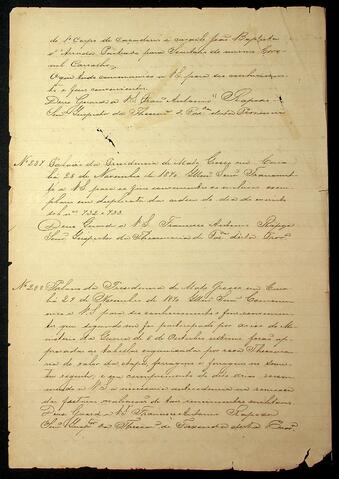 do 1º Corpo de Cavadores a cavallo João Baptista
d'Arruda
Carvalho
O que tudo communico a VS para seu conhecimento
e fins convenientes.
Deus Guarde a VS Francisco Antonio Raposo
Senr Inspector da Thesouraria de Fazda desta Provincia
Nº 237 Palacio da Presidencia de Matto Grosso em Cuia
bá 28 de Novembro de 1870 Illmo Senr Transmitto
a VS para os fins convenientes os inclusos exem
plares em duplicata das ordens do dia do exerci
to nos 732 e 733.
Deus Guarde a VS. Francisco Antonio Raposo
Senr Inspector da Thesouraria de Fazda desta Provª
Palacio da Presidencia de Matto Grosso em Cuia
bá 29 de Novembro de 1870 Illmo Senr Communi
co a VS para seu conhecimento e fins convenien
tes que segundo me foi participado por aviso do Mi
nisterio da Guerra de 8 de Outubro ultimo forão ap
provadas as tabellas organisadas por essa Thesoura
ria do valor da etapa, ferragem e forragem no
e que cumprimento do dito aviso recom
mendo a VS a maxima antecedencia na remessa
das
Deus Guarde a VS Francisco Antonio Raposo
Senr Inspor da Thesouraria de Fazenda desta Provª